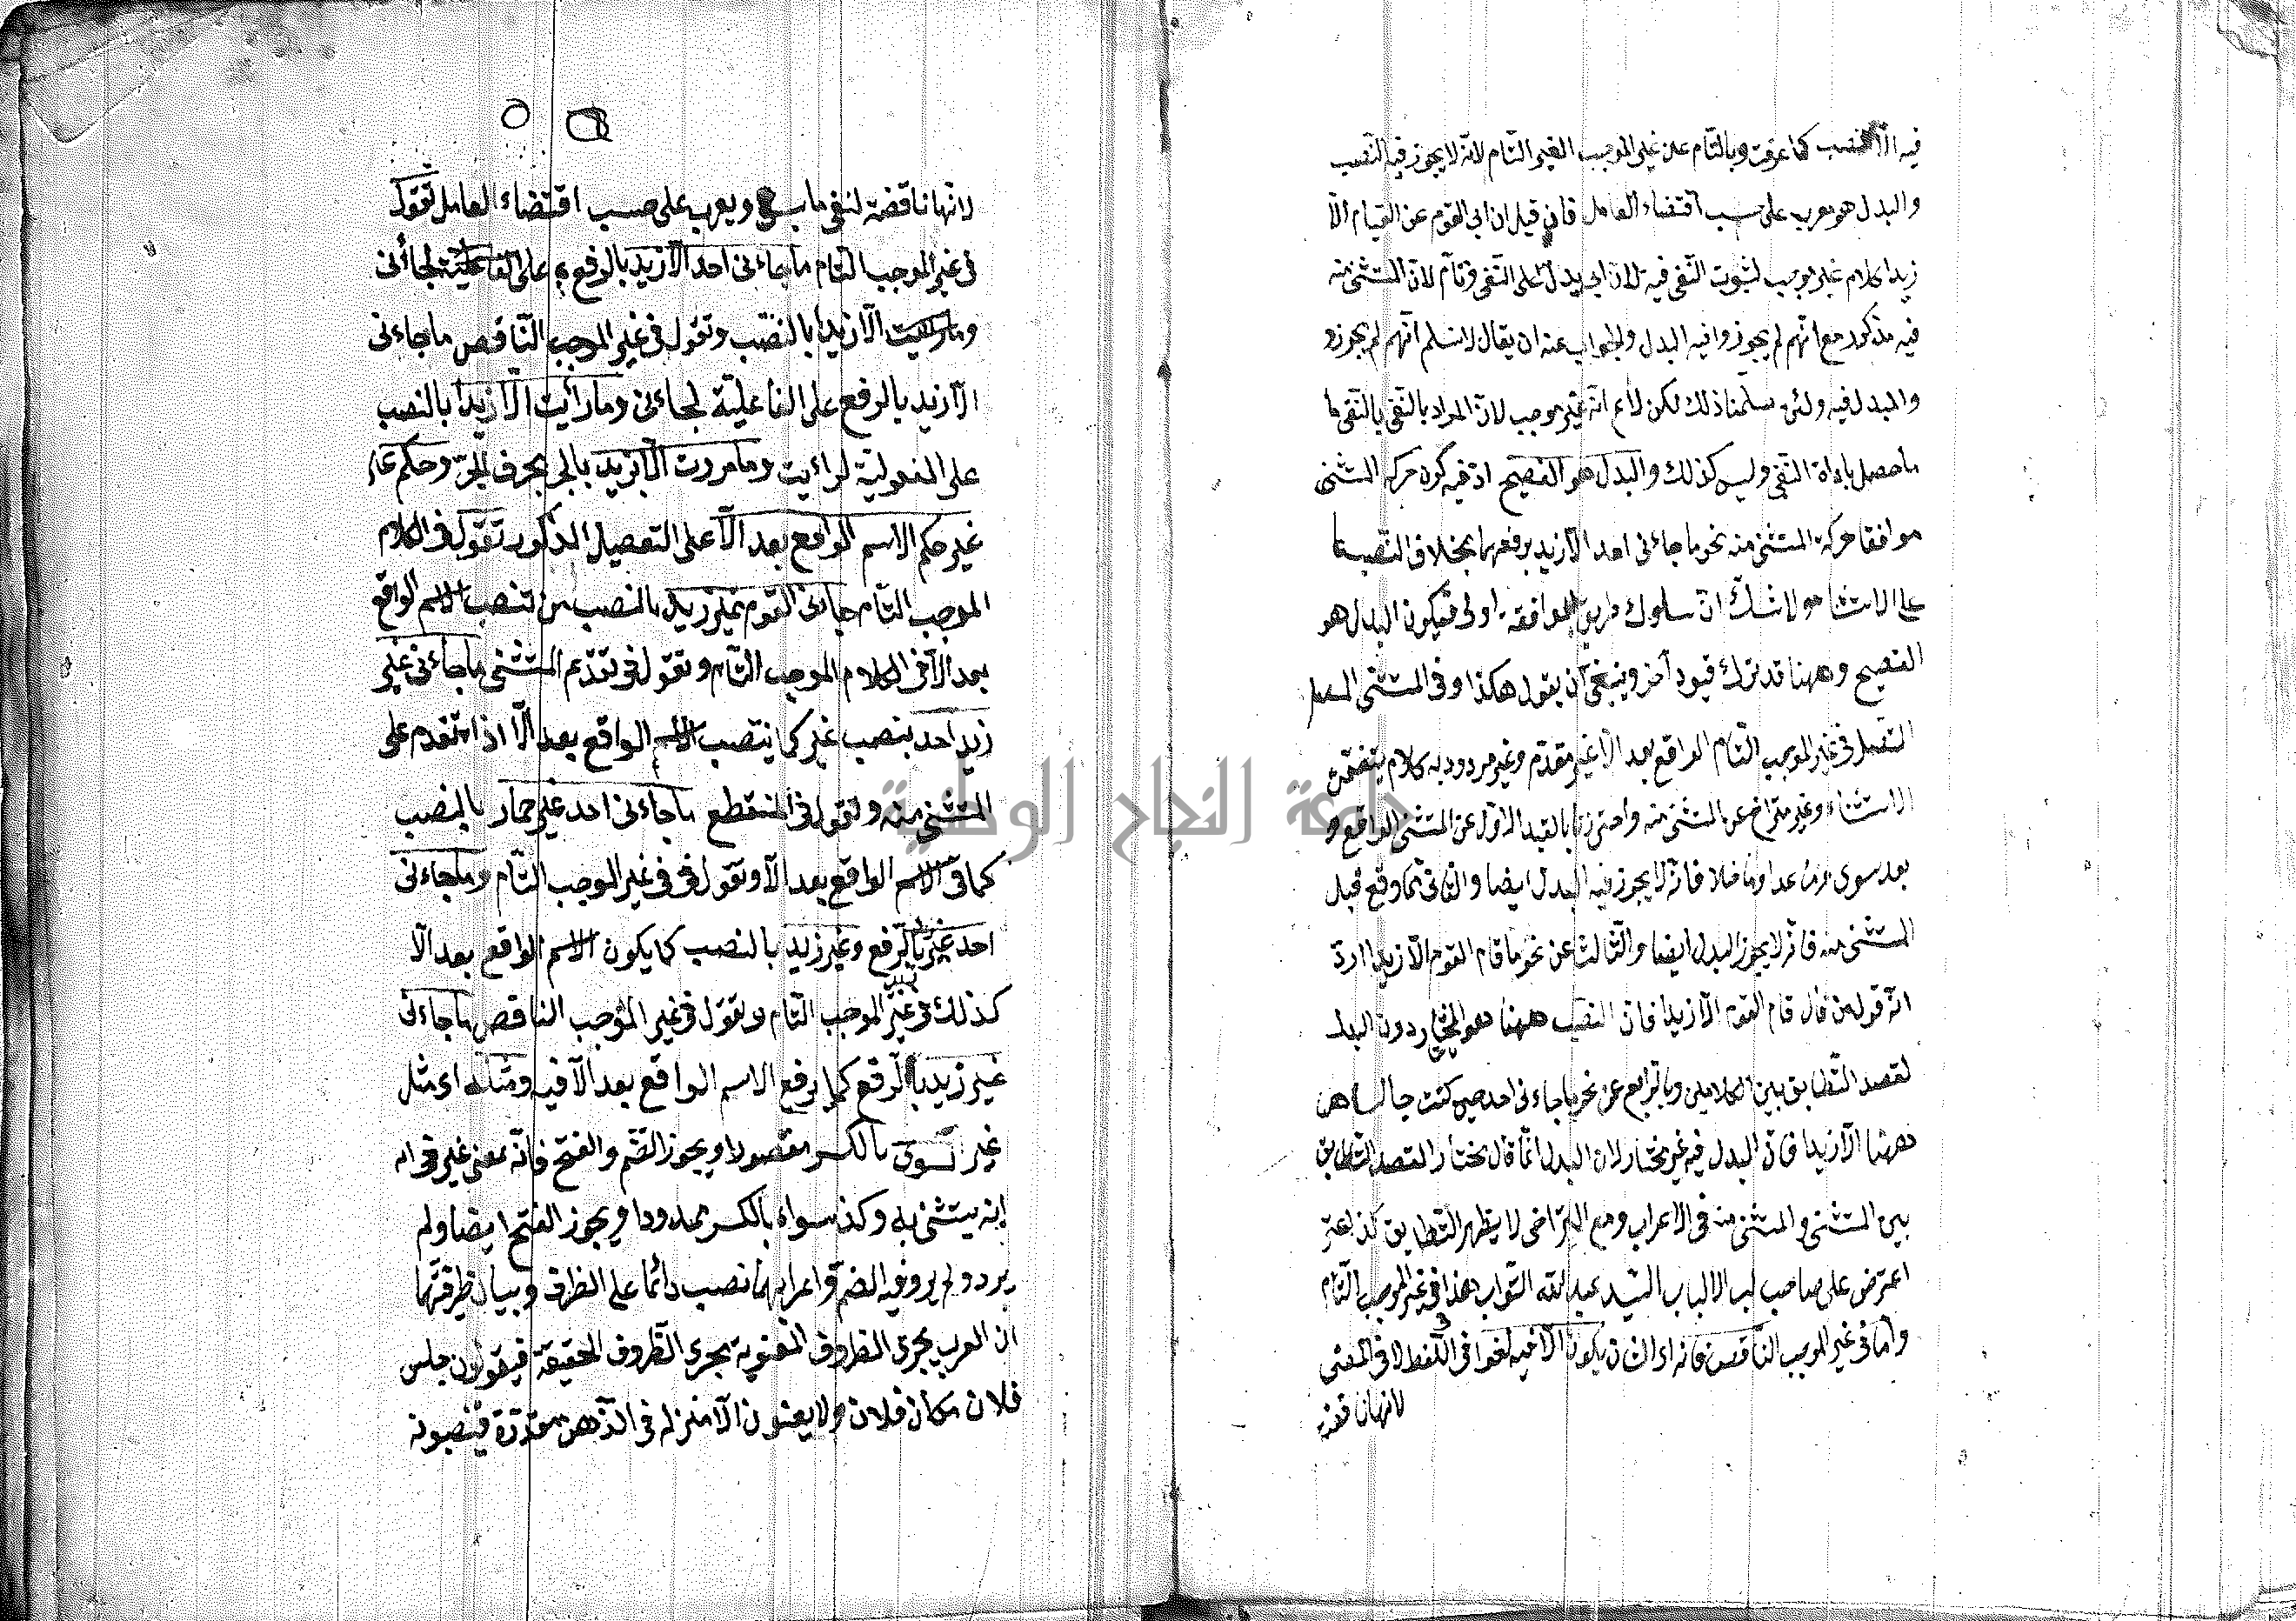 فيه الا النصب كما عرفت وبالتام عن غير الموجب الغير التام لانه لا يجوز فيه النصب
والبدل هو معرب على حسب اقتضاء العامل فان قيل ان ابى القوم عن القيام الا
زيدا كلام غير موجب لثبوت النفى فيه لان ابى يدل على النفى وتام لان المستثنى منه
فيه مذكور مع انهم لم يجوزوا فيه البدل والجواب عنه ان يقال لا نسلم انهم لم يجوزو
والبدل فيه ولئن سلمنا ذلك لكن لا نم انه غير موجب لان المراد بالنفى بالنفى ما
ما حصل باداة النفى وليس كذلك والبدل هو الفصيح اذ فيه كون حركة المستثنى
موافقا حركة المستثنى منه نحو ما جاءنى احد الا زيد برفعهما بخلاف النصب
على الاستثناء ولا شك ان سلوك طريق الموافقة اولى فيكون البدل هو
الفصيح وههنا قد ترك قيود آخر وينبغى ان يقول هكذا وفى المستثنى
المتصل فى غير الموجب التام الواقع بعد الا غير مقدم وغير مردود به كلام يتضمن
الاستثناء وغير متراخ عن المستثنى منه واحترزنا بالقيد الاول عن المستثنى الواقع و
بعد سوى وما عدا وما خلا فانه لا يجوز فيه البدل ايضا والثانى عما وقع قبل
المستثنى منه فانه لا يجوز البدل ايضا والثالث عن نحو ما قام القوم الا زيدا اردة
انه قول من قال قام القوم الا زيدا فان النصب ههنا هو المختار دون البدل
لقصد التطابق بين الكلامين وبالرابع عن نحو ما جاءنى احد حين كنت جالسا هن
ههنا الا زيدا فان البدل فيه غير مختار لان البدل انما قال يختار لقصد التطابق
بين المستثنى والمستثنى منه فى الاعراب ومع التراخى لا يظهر التطابق كذا عتر
اعترض على صاحب لب الالباب السيد عبد الله التواب هذا فى غير الموجب التام
واما فى غير الموجب الناقص فانه اى الشان يكون الا فيه لغوا فى اللفظ لا فى المعنى
لانها ناقضة
لانها ناقضة لنفى ما سبق ويعرب على حسب اقتضاء العامل تقول
فى غير الموجب التام ما جاءنى احد الا زيد بالرفع على الفاعلية لجاءنى
وما رأيت الا زيدا بالنصب وتقول فى غير الموجب الناقص ما جاءنى
الا زيد بالرفع على الفاعلية لجاءنى وما رأيت الا زيدا بالنصب
على المفعولية لرأيت وما مررت الا بزيد بالجر بحرف الجر وحكم
غير حكم الاسم الواقع بعد الا على التفصيل المذكور تقول فى الكلام
الموجب التام جاءنى القوم غير زيد بالنصب من تنصب الاسم الواقع
بعد الا فى الكلام الموجب التام وتقول فى تقدم المستثنى ما جاءنى غير
زيد احد بنصب غير كما ينتصب الاسم الواقع بعد الا اذا تقدم على
المستثنى منه وتقول فى المنقطع ما جاءنى احد غير حمار بالنصب
كما فى الاسم الواقع بعد الا وتقول فى فى غير الموجب التام وما جاءنى
احد غير زيد بالرفع وغير زيد بالنصب كما يكون الاسم الواقع بعد الا
كذلك فى غير الموجب التام وتقول فى غير الموجب الناقص ما جاءنى
غير زيد بالرفع كما يرفع الاسم الواقع بعد الا فيه ومثله اى مثل
غير سوى بالكسر مقصورا ويجوز الضم والفتح فانه بمعنى غير فى انه
انه يستثنى به وكذا سواء بالكسر ممدودا ويجوز الفتح ايضا ولم
يرد ولم يرو فيه الضم واعرابهما نصب دائما على الظرف وبيان ظرفيتهما
ان العرب يجرى الظروف المعنوية مجرى الظروف الحقيقة فيقولون جلس
فلان مكان فلان ولا يعنون الا منزله فى الذهن مقدرة فينصبونه
جامعة النجاح الوطنية